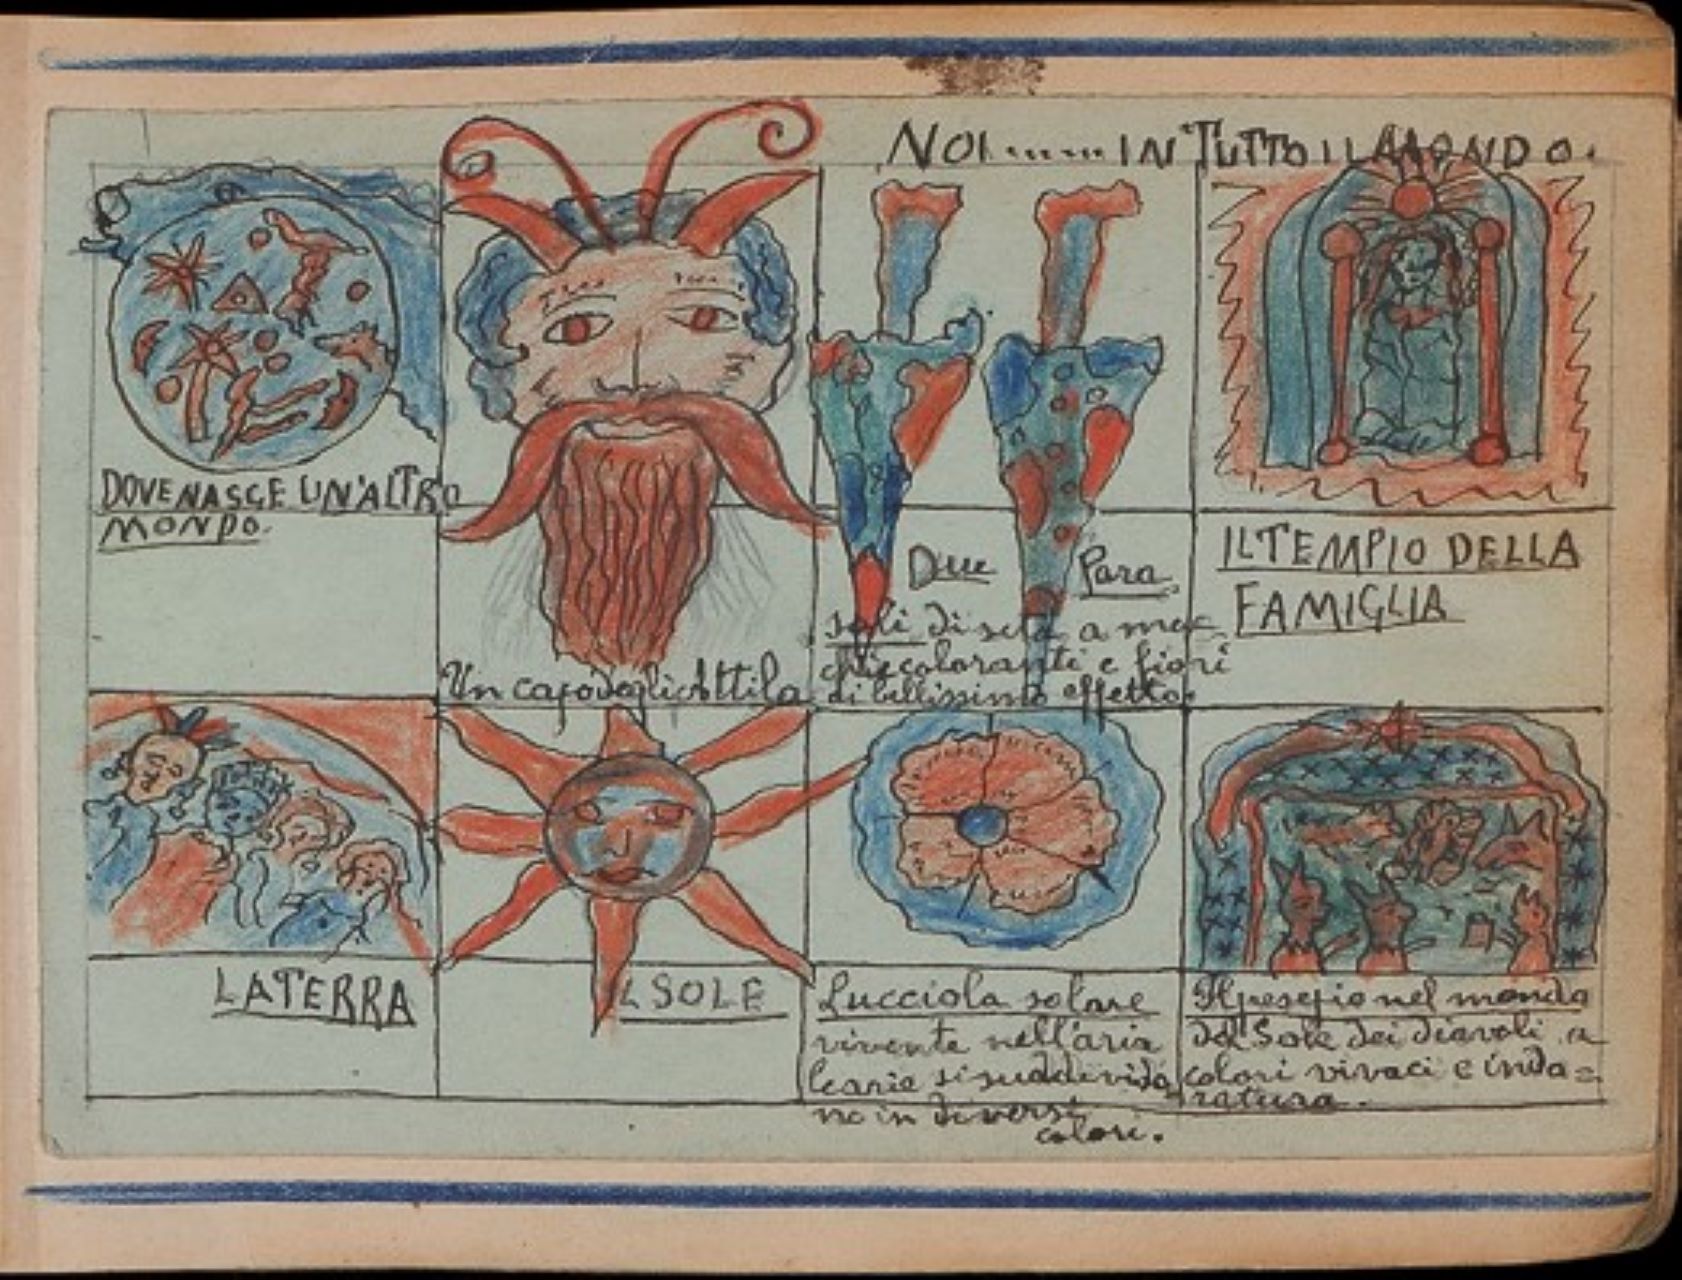 NOI....... IN TUTTO IL MONDO.
DOVE NASCE UN'ALTRO
MONDO.
Un capo degli Attila
Due Para
soli di seta a mac
chie coloranti e fiori
di bellissimo effetto.
IL TEMPIO DELLA
FAMIGLIA
LA TERRA
IL SOLE
Lucciola solare
vivente nell'aria
le arie si suddivido
no in diversi
colori.
Il presepio nel mondo
del Sole dei diavoli a
colori vivaci e indo=
ratura.